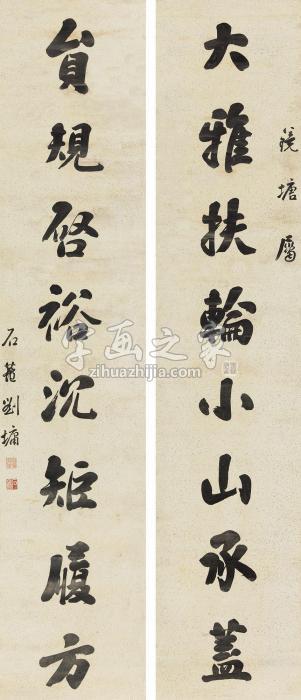 鏡塘屬
大雅扶輪小山承蓋
貟規啓裕沉矩履方
石菴劉墉
字画之家
zihuazhijia.com